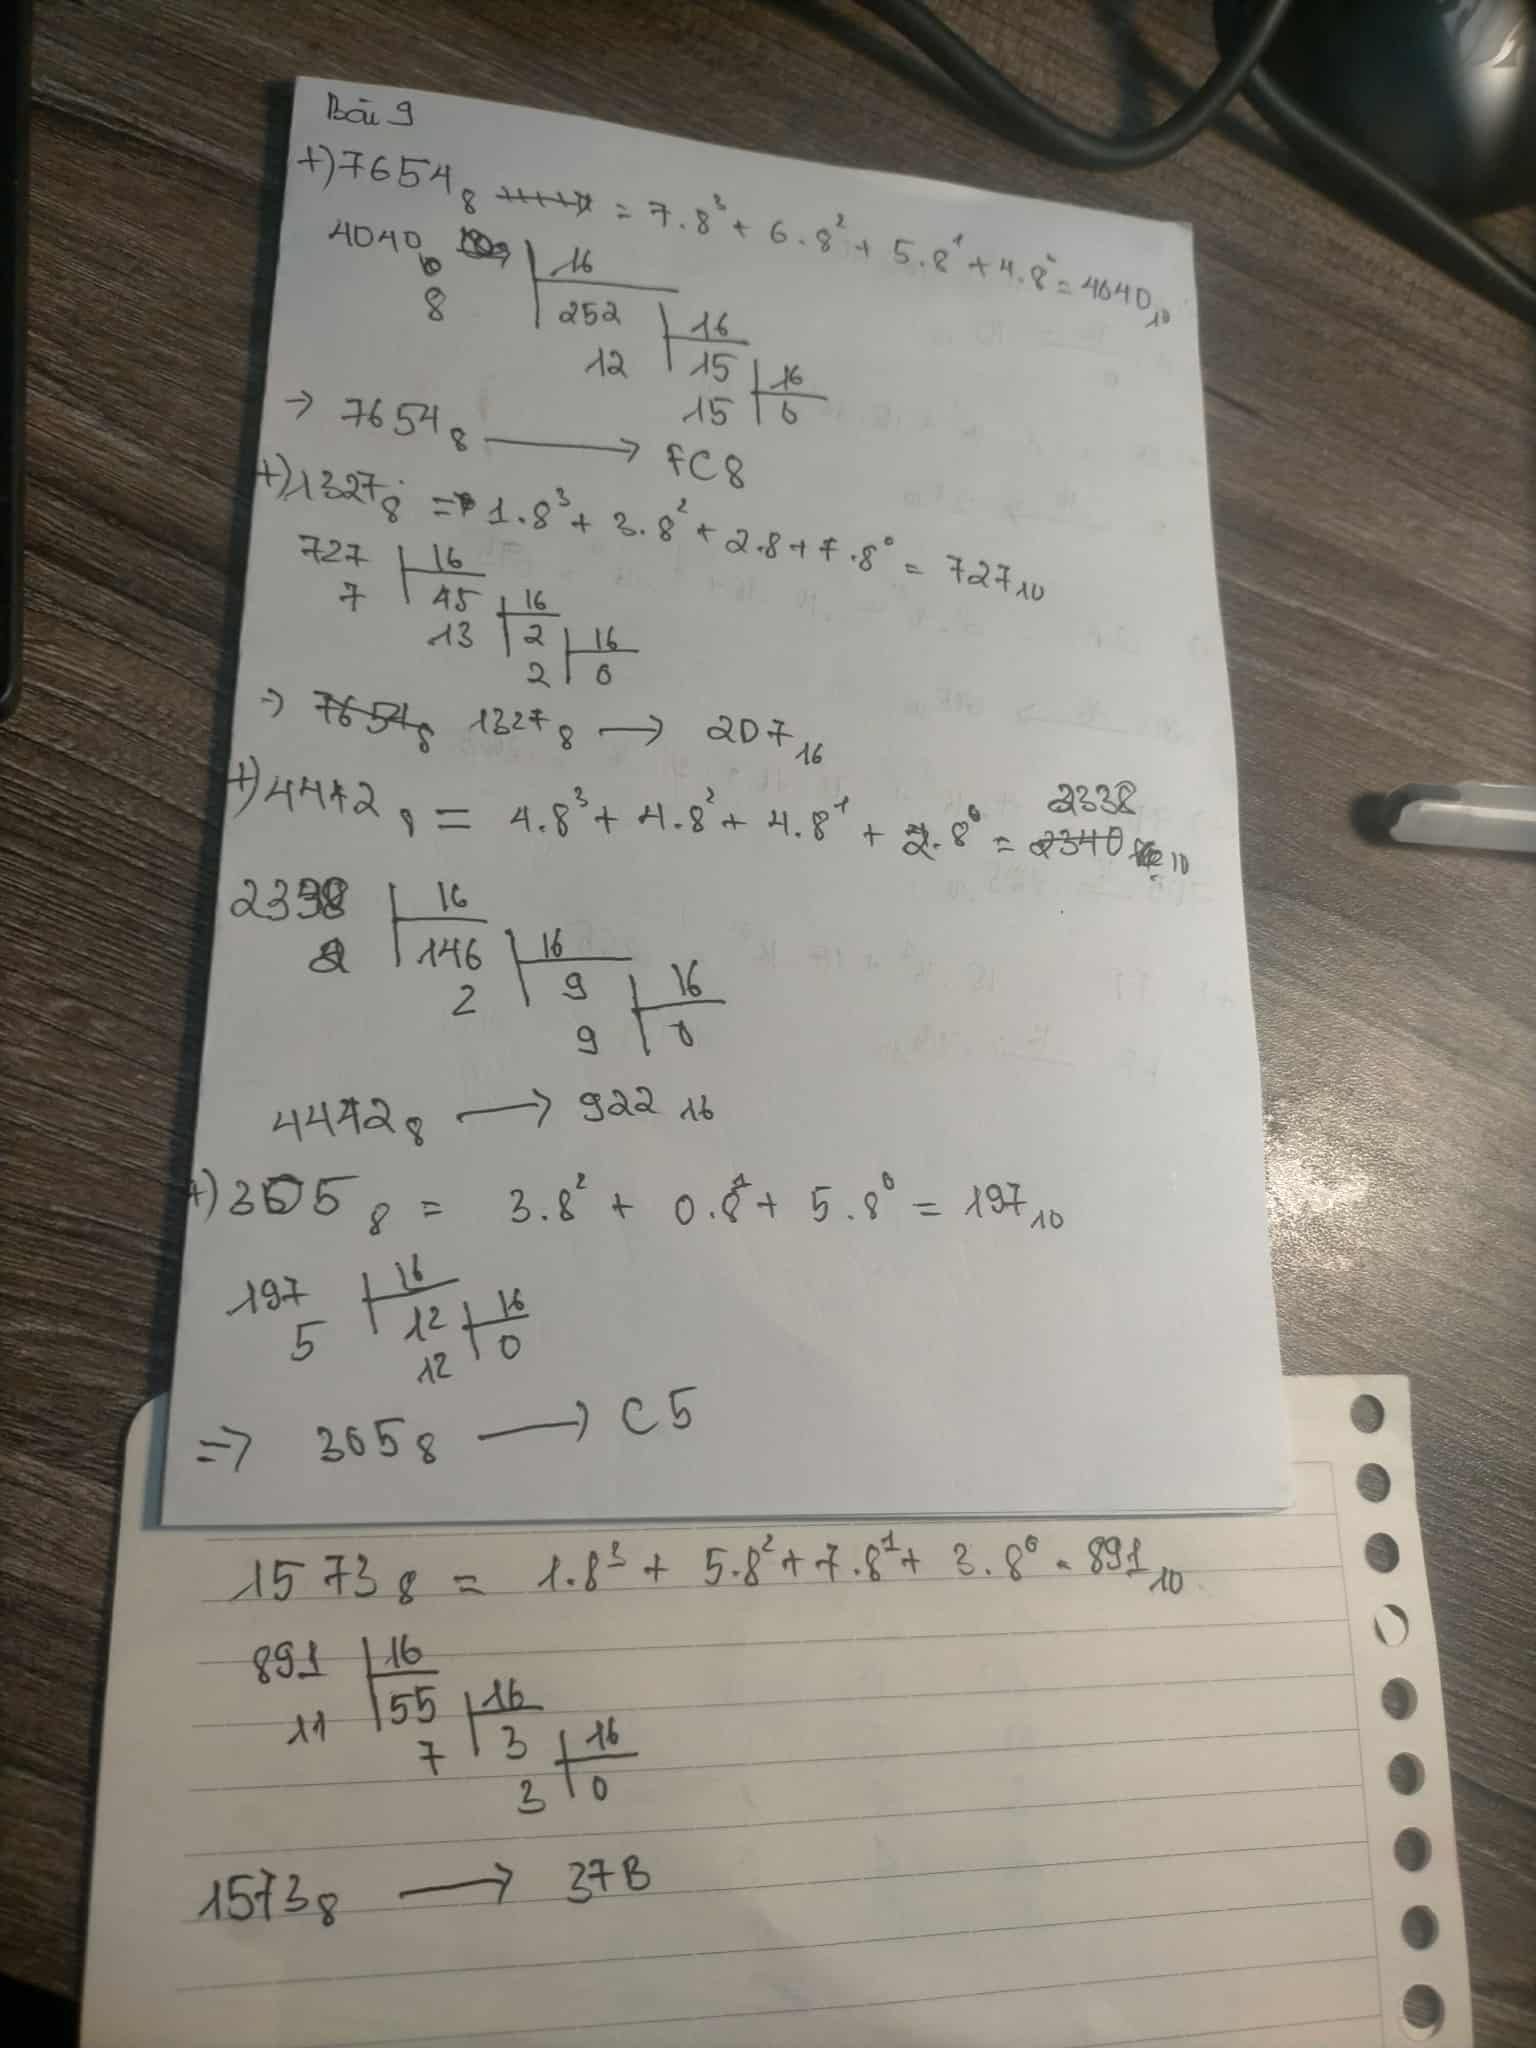 Bài 9
+) 7654₈ = 7.8³ + 6.8² + 5.8¹ + 4.8⁰ = 4040₁₀
4040 16
8 252 16
12 15 16
15 0
→ 7654₈ ⟶ FC8
+) 1327₈ = 1.8³ + 3.8² + 2.8 + 7.8⁰ = 727₁₀
727 16
7 45 16
13 2 16
2 0
→ 7654₈ 1327₈ ⟶ 2D7₁₆
+) 4442₈ = 4.8³ + 4.8² + 4.8¹ + 2.8⁰ = 2340 2338 ₁₀
2338 16
2 146 16
2 9 16
9 0
4442₈ ⟶ 922₁₆
+) 305₈ = 3.8² + 0.8¹ + 5.8⁰ = 197₁₀
197 16
5 12 16
12 0
⇒ 305₈ ⟶ C5
1573₈ = 1.8³ + 5.8² + 7.8¹ + 3.8⁰ = 891₁₀
891 16
11 55 16
7 3 16
3 0
1573₈ ⟶ 37B